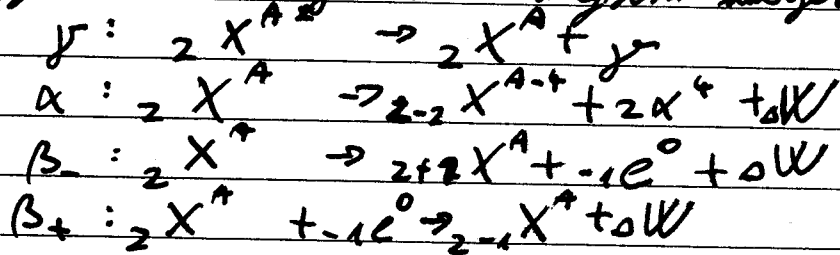 γ : ₂X^A* → ₂X^A + γ
α : ₂X^A → ₂₋₂X^A-4 + ₂α^4 + ΔW
β₋ : ₂X^A → ₂₊₁X^A + ₋₁e^0 + ΔW
β₊ : ₂X^A + ₋₁e^0 → ₂₋₁X^A + ΔW